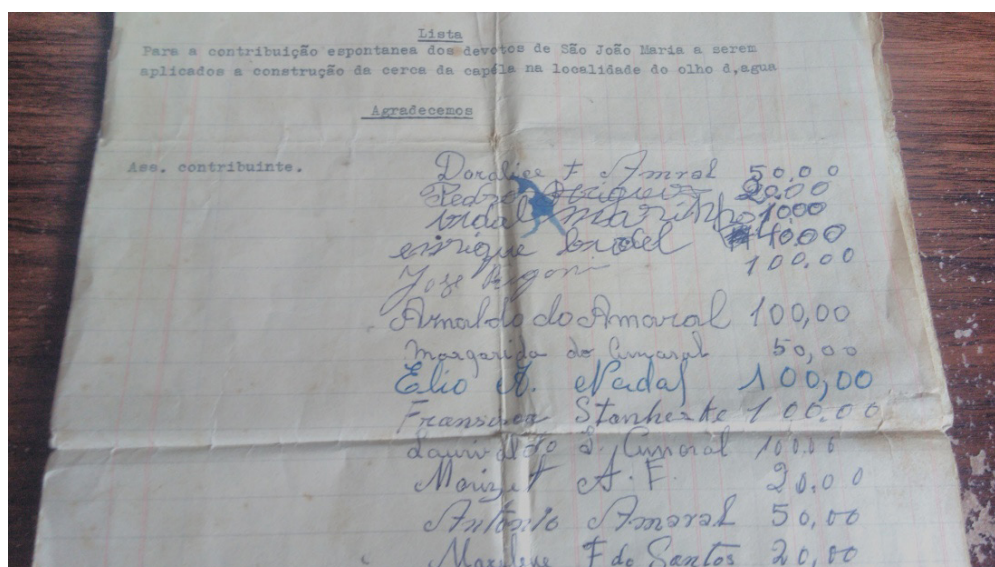 Lista
Para a contribuição espontanea dos devotos de São João Maria a serem
aplicados a construção da cerca da capéla na localidade do olho d,agua
Agradecemos
Ass. contribuinte.
Doralice F Amral 50.00
Pedro 20.00
vidal marinho 1000
enrique budel 40.00
Jose Rigoni 100.00
Arnaldo do Amaral 100,00
Margarida do Amaral 50,00
Elio A. Nadal 100,00
Stanheske 100.00
Amaral 100.00
A. F. 20.00
Antonio Amaral 50,00
F do Santos 20,00